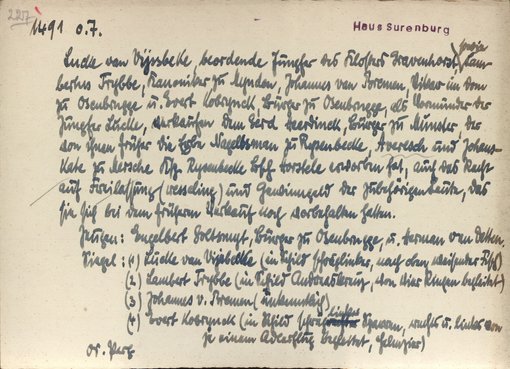 227
1491 o. J.
Haus Surenburg
Lucke van Vysbecke, beordende Jungfer des Klosters Gravenhorst, sowie Lam-
bertus Frybbe, Kanoniker zu Mynden, Johannes van Bremen, Vikar im Dom
zu Osenbrugge u. Evert Kobrynck Bürger zu Osenbrugge, als Vormünder der
Jungfer Lucke, verkaufen dem Gerd Heerdinck, Bürger zu Munster, der
von ihnen früher die Erbe Nagelsman zu Rysenbecke, und Johans
Kate zu Mersche Ksp. Rysenbecke erworben hat, auch das Recht
auf Freilassung (wesseling) und Gewinngeld der zubehörigen Leute, das
sie sich bei dem früheren Verkauf noch vorbehalten hatten.
Zeugen: Engelbert Bürger zu Osenbrugge, u. Herman van Detten.
Siegel: (1) Lucke van Vysbecke (in Schild nach oben weisender
(2) Lambert Frybbe (in Schild Andreaskreuz, von vier Ringen begleitet)
(3) Johannes v. Bremen (unkenntlich)
(4) Evert Kobrynck (in Schild linker Sparren, rechts u. links von
je einem Adlerflug begleitet,
Or. Perg